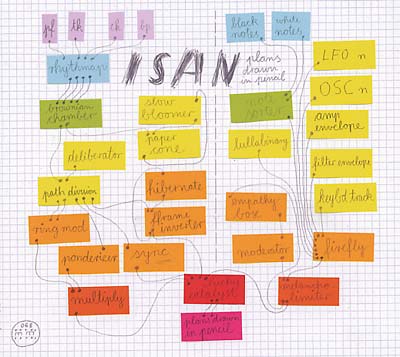 pf tk ck bp
black notes
white notes
rhythmaps
ISAN
plans
drawn
in pencil
LFO n
OSC n
brownian
chamber
slow
bloomer
note
sorter
amp
envelope
paper
cone
lullabinary
deliberator
filter envelope
path division
hibernate
keybd track
frame
inverter
empathy
box
ring mod
ponderizer
sync
moderator
firefly
multiply
lucky
catalyst
melancho
limiter
plans drawn
in pencil